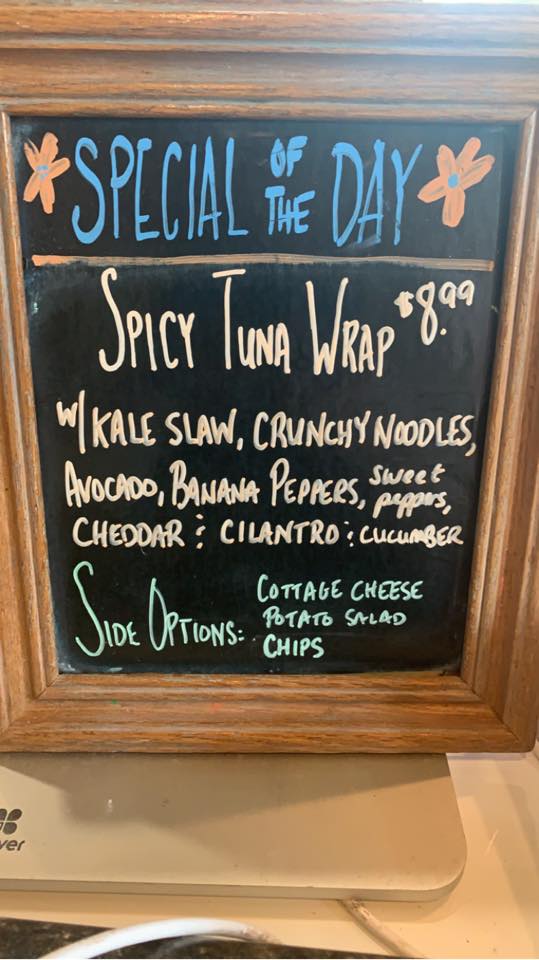 SPECIAL OF THE DAY
SPICY TUNA WRAP $8.99
W/ KALE SLAW, CRUNCHY NOODLES,
AVOCADO, BANANA PEPPERS, sweet peppers,
CHEDDAR & CILANTRO & CUCUMBER
SIDE OPTIONS: COTTAGE CHEESE
POTATO SALAD
CHIPS